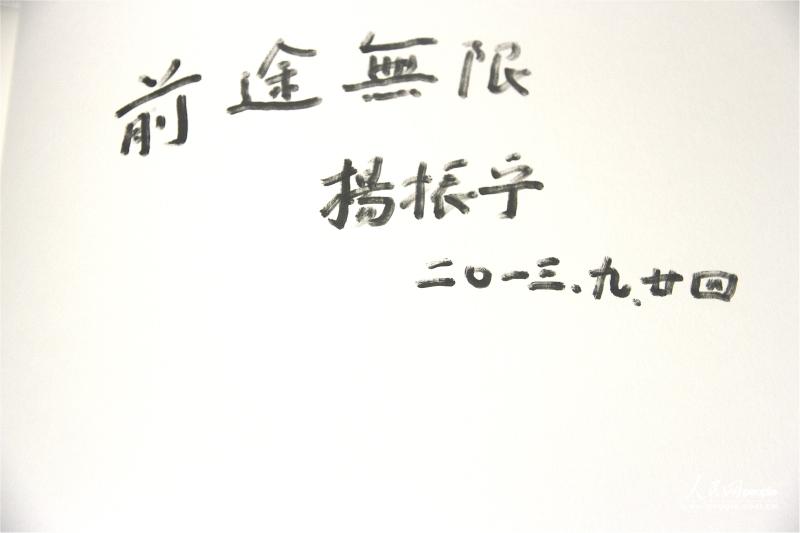 前途無限
楊振宁
二〇一三.九.廿四
人民网